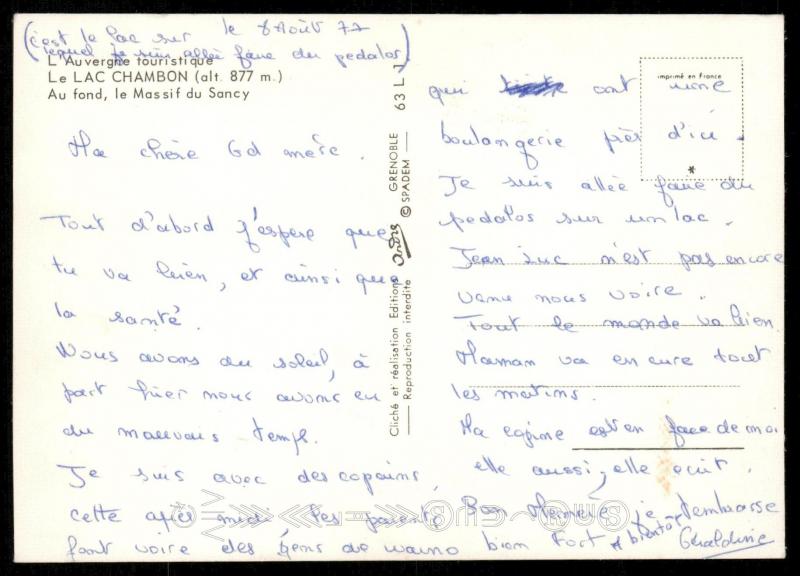 le 8 Août 77
(c'est le lac sur
lequel je suis allée faire du pedalos)
L'Auvergne touristique
Le LAC CHAMBON (alt. 877 m.)
Au fond, le Massif du Sancy
Ma chère Gd mère.
Tout d'abord j'espère que
tu va bien, et ainsi que
la santé.
Nous avons du soleil, à
part hier nous avons eu
du mauvais temps.
Je suis avec des copains,
cette après midi les parents
font voire des gens de
Cliché et réalisation Editions André GRENOBLE 63 L
Reproduction interdite © SPADEM
imprimé en France
qui ont une
boulangerie près d'ici.
Je suis allée faire du
pedalos sur un lac.
Jean Luc n'est pas encore
venu nous voire.
Tout le monde va bien.
Maman va en cure tout
les matins.
Ma copine est en face de moi
elle aussi, elle écrit.
Bon Mémère je t'embrasse
bien Fort à bientôt
Géraldine